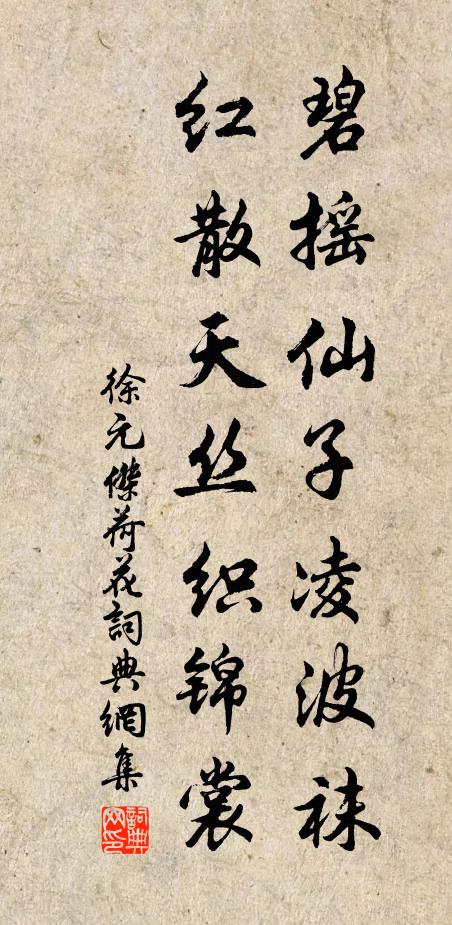 碧摇仙子凌波袜
红散天丝织锦裳
徐元傑荷花詞典網集
詞典网印